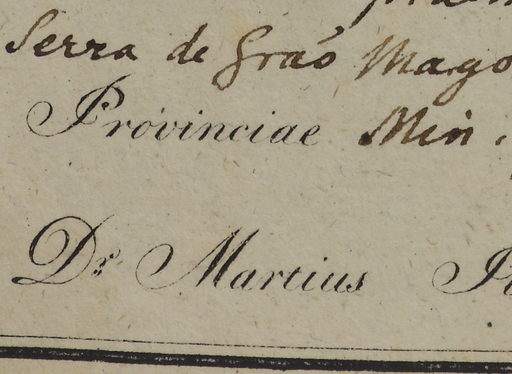 Serra de Graõ Mago
Provinciae Min.
Dr. Martius